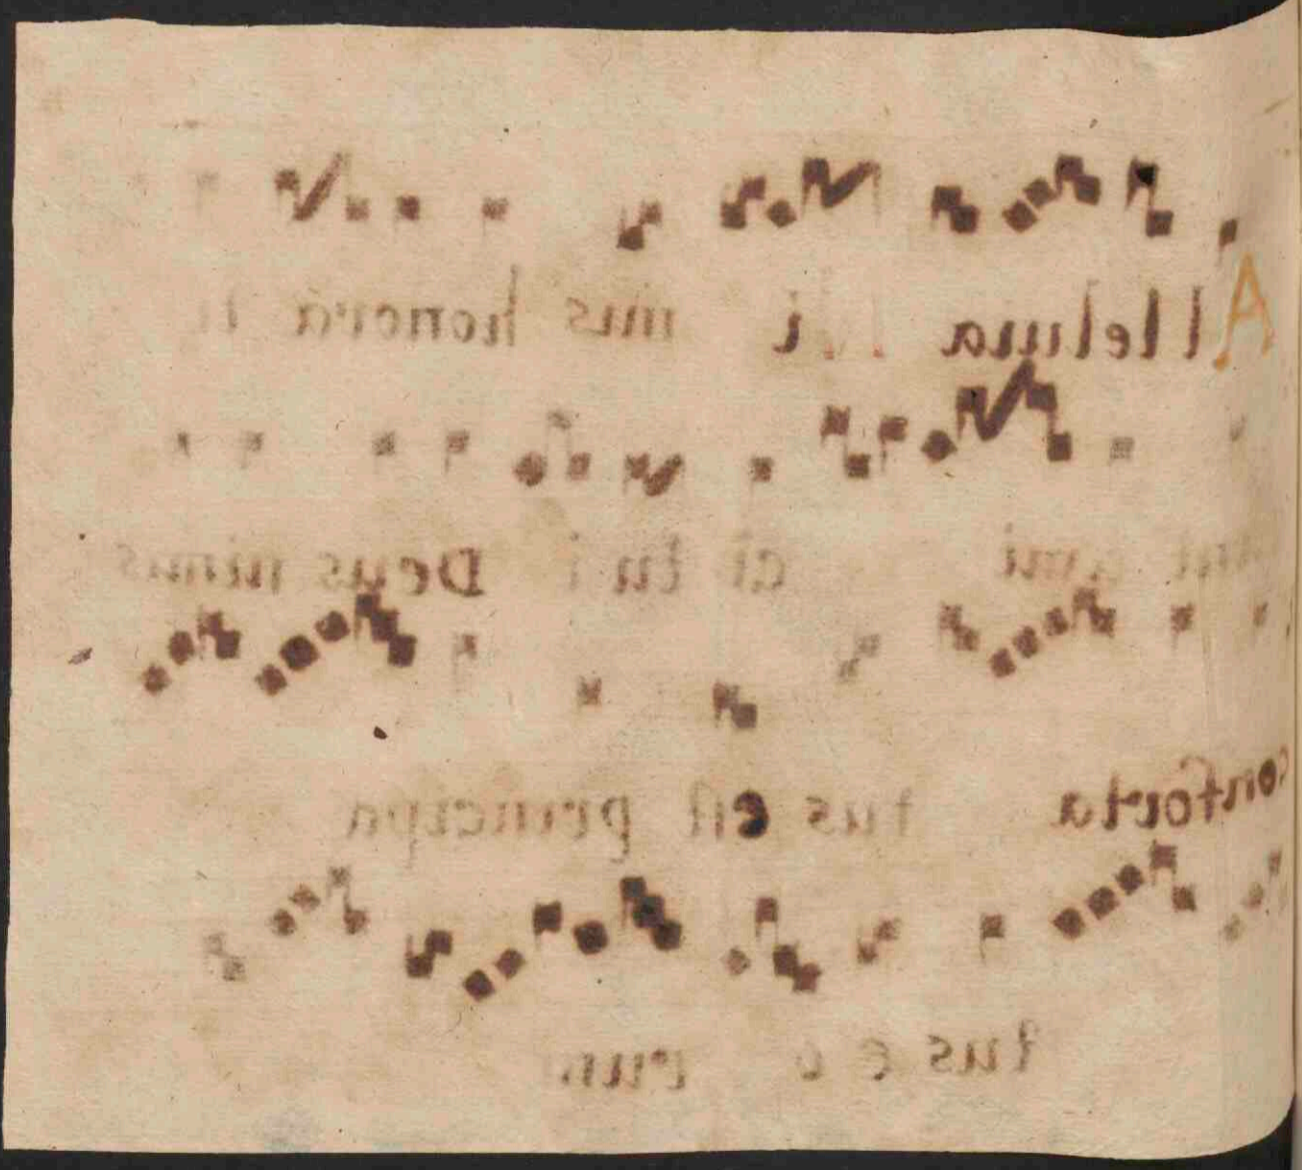 Alleluia Ni mis honora ti
sunt ami ci tui Deus nimis
conforta tus est principa
tus e o rum